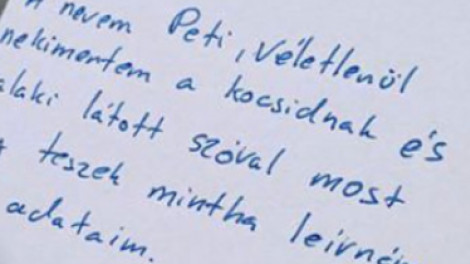 nevem Peti, véletlenül
nekimentem a kocsidnak és
alaki látott szóval most
teszek mintha leírné
adataim.